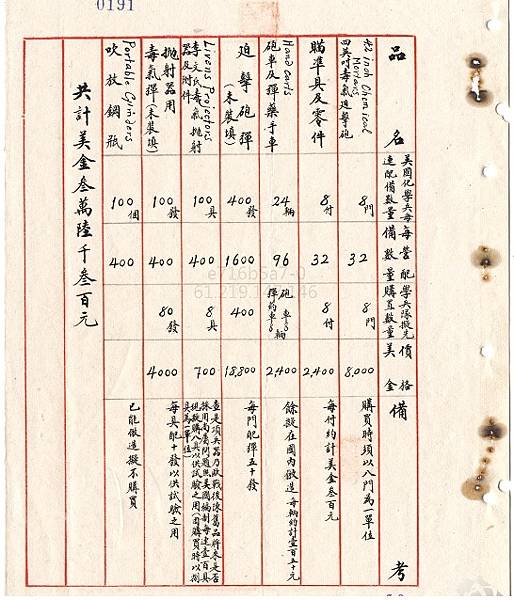 0191
品名
美國化學兵每連配備數量
每營配備數量
學兵隊擬先購買數量
價格美金
備考
4.2 inch Chemical Mortars
四英吋毒氣迫擊砲
8門
32
8門
8,000
購買時須以八門為一單位
瞄準具及零件
8付
32
8付
2,400
每付約計美金叁百元
Hand carts
砲車及彈藥手車
24輛
96
砲車8輛
彈葯車8
2,400
餘擬在國內倣造每輛約計壹百五十元
迫擊砲彈(未裝填)
400發
1600
400
18,800
每門配彈五十發
Livens Projectors
李文氏毒氣拋射器及附件
100具
400
8具
700
查是項兵器乃歐戰後陳舊品將來是否採用尚屬問題然美國編制每連壹百具現擬購八具以供試驗之用(因購買時以捌具為一單位)
拋射器用毒氣彈(未裝填)
100發
400
80發
4000
每具配十發以供試驗之用
Portable Cylinders
吹放鋼瓶
100個
400
已能倣造擬不購買
共計美金叁萬陸千叁百元
e716b5a7-0
61.219.146